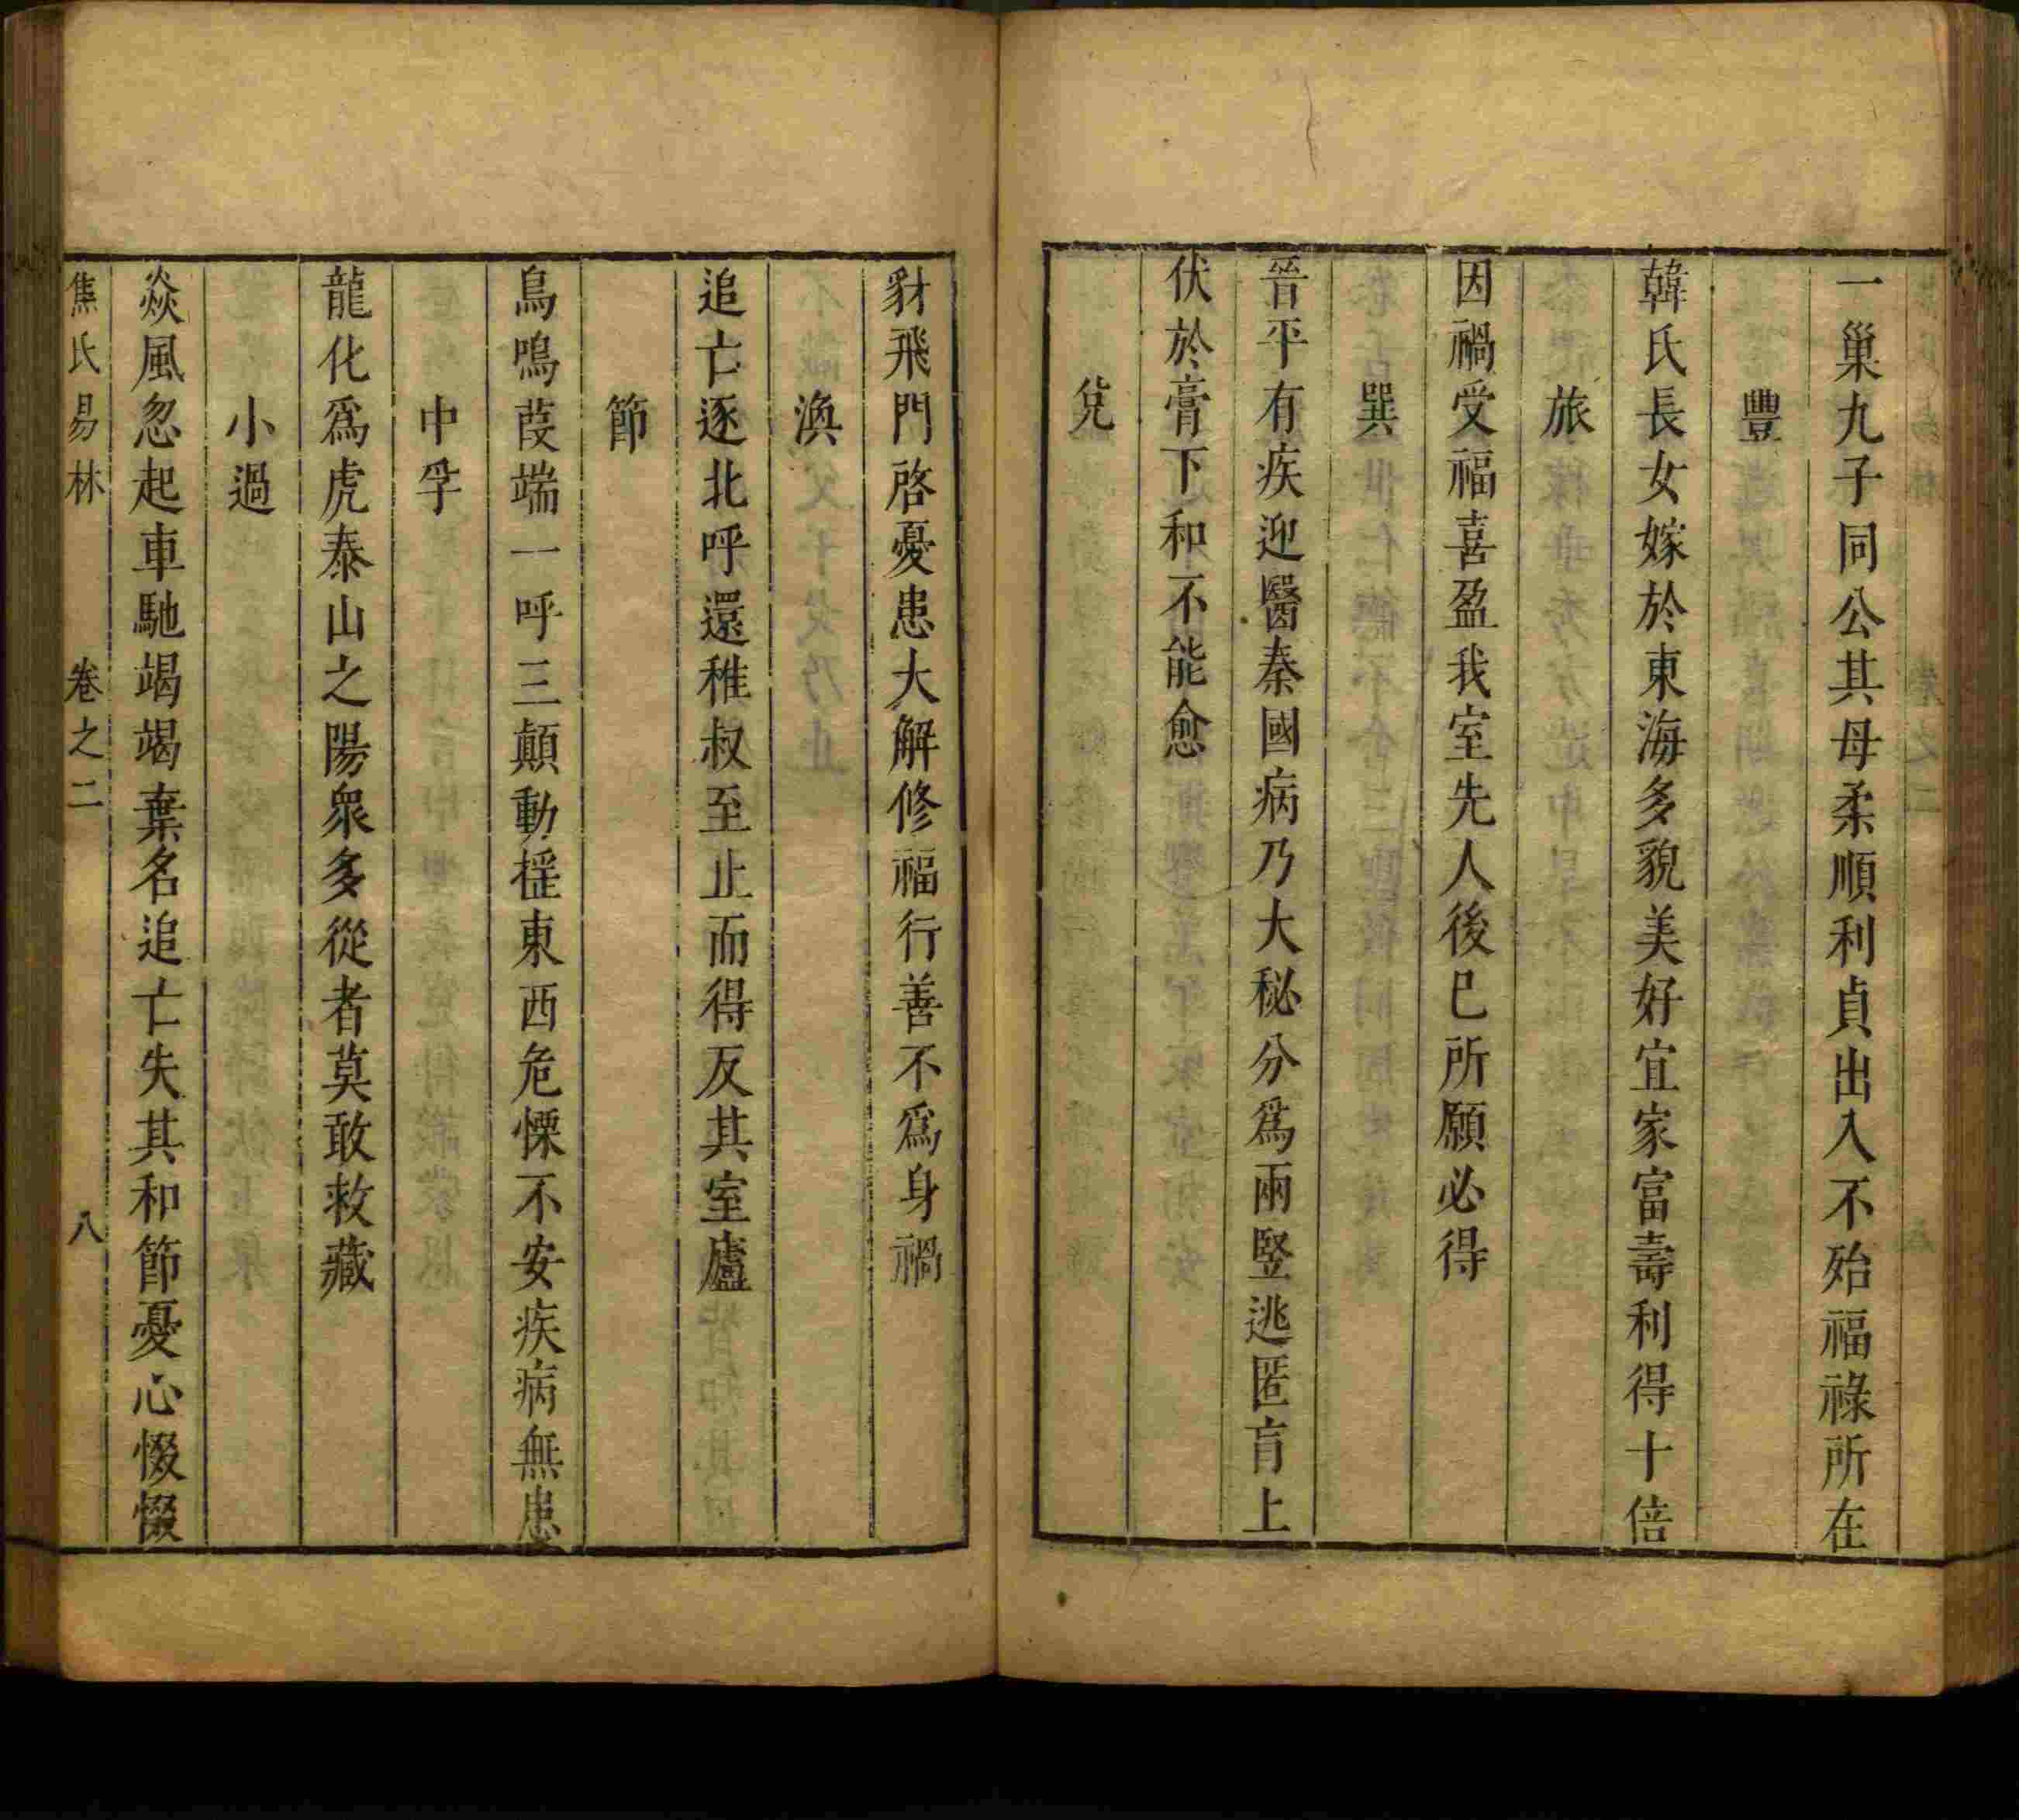 一巢九子同公其母柔順利貞出入不殆福祿所在
豐
韓氏長女嫁於東海多貌美好宜家富壽利得十倍
旅
因禍受福喜盈我室先人後巳所願必得
巽
晉平有疾迎醫秦國病乃大秘分爲兩竪逃匿肓上
伏於膏下和不能愈
兌
豺飛門啓憂患大解修福行善不爲身禍
渙
追亡逐北呼還稚叔至止而得反其室廬
節
鳥鳴葭端一呼三顛動搖東西危慄不安疾病無患
中孚
龍化爲虎泰山之陽衆多從者莫敢救藏
小過
焱風忽起車馳竭竭棄名追亡失其和節憂心惙惙
焦氏易林 卷之二 八